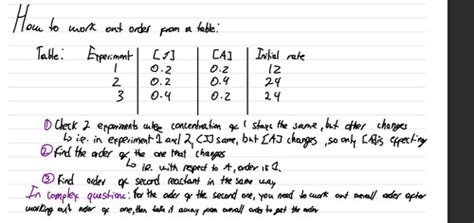 How to work out order from a table:
Table: Experiment [J] [A] Initial rate
1 0.2 0.2 12
2 0.2 0.4 24
3 0.4 0.2 24
① Check 2 experiments where concentration of 1 stays the same, but other changes
↳ i.e. in experiment 1 and 2, [J] same, but [A] changes, so only [A] is affecting
② Find the order of the one that changes
↳ i.e. with respect to A, order is 1.
③ Find order of second reactant in the same way
In complex questions: for the order of the second one, you need to work out overall order after
working out order of one, then take it away from overall order to get the order